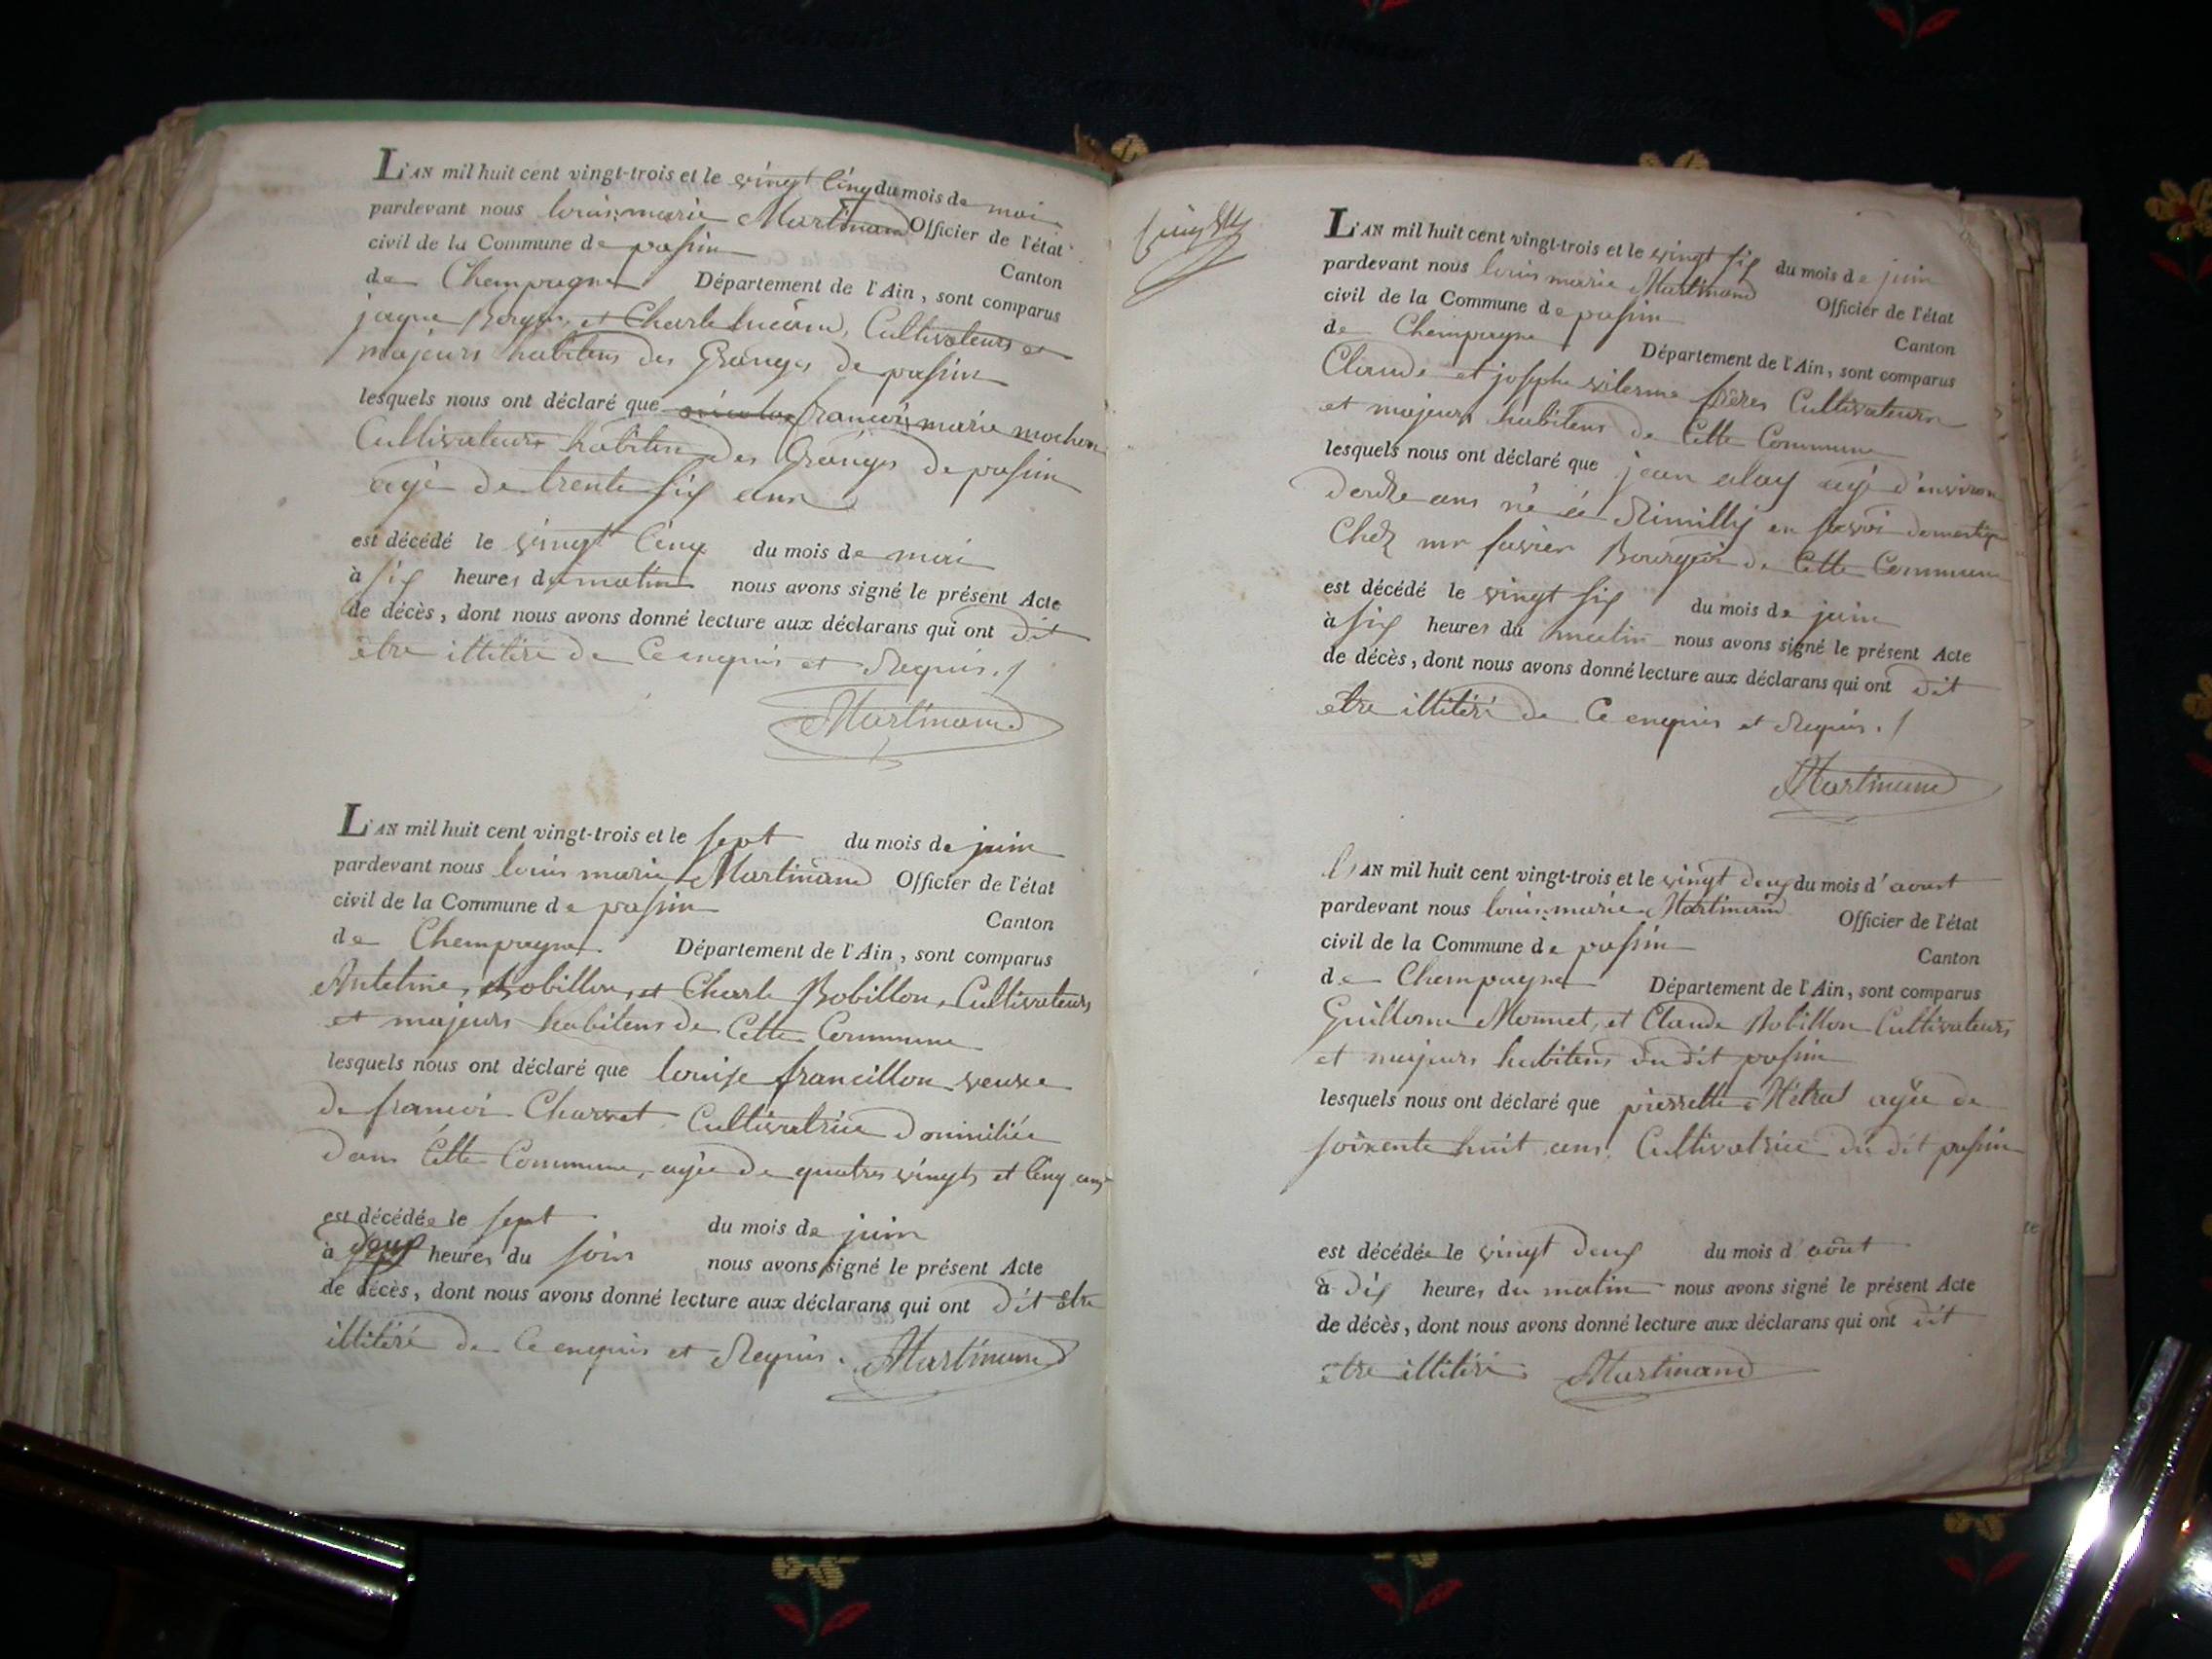 L'AN mil huit cent vingt-trois et le vingt cinq du mois de mai
pardevant nous louis marie Martinand Officier de l'état
civil de la Commune de passin
Canton
de Chempagne Département de l'Ain, sont comparus
jaque et Charle Cultivateurs et
majeurs habitens des Granges de passin
lesquels nous ont déclaré que francois marie mochon
Cultivateur habiten des Granges de passin
agé de trente six ans
est décédé le vingt cinq du mois de mai
à six heures du matin nous avons signé le présent Acte
de décès, dont nous avons donné lecture aux déclarans qui ont dit
etre illitéré de Ce enquis et Requis ./
Martinand
L'AN mil huit cent vingt-trois et le sept du mois de juin
pardevant nous louis marie Martinand Officier de l'état
civil de la Commune de passin
Canton
de Chempagne. Département de l'Ain, sont comparus
Antelme Bobillon, et Charle Bobillon, Cultivateurs
et majeurs habitens de Cette Commune
lesquels nous ont déclaré que louise francillon veuve
de francoi Charvet Cultivatrice domiciliée
dans Cette Commune, agée de quatres vingts et cinq ans
est décédée le sept du mois de juin
à deux heures du soir nous avons signé le présent Acte
de décès, dont nous avons donné lecture aux déclarans qui ont dit etre
illitéré de Ce enquis et Requis. Martinand
L'AN mil huit cent vingt-trois et le vingt six du mois de juin
pardevant nous louis marie Martinand Officier de l'état
civil de la Commune de passin
Canton
de Chempagne Département de l'Ain, sont comparus
Claude et josephe vilerme frères Cultivateurs
et majeurs habitens de Cette Commune
lesquels nous ont déclaré que jean alay agé d'environ
douze ans né à Rimilly en savoi domestique
Chez mr favier Bourgeois de Cette Commune
est décédé le vingt six du mois de juin
à six heures du matin nous avons signé le présent Acte
de décès, dont nous avons donné lecture aux déclarans qui ont dit
etre illitéré de Ce enquis et Requis ./
Martinand
L'AN mil huit cent vingt-trois et le vingt deux du mois d'aoust
pardevant nous louis marie Martinand Officier de l'état
civil de la Commune de passin
Canton
de Chempagne Département de l'Ain, sont comparus
Guillome Monnet, et Claude Bobillon Cultivateurs
et majeurs habitens du dit passin
lesquels nous ont déclaré que pierrette Métral agée de
soixente huit ans Cultivatrice du dit passin
est décédée le vingt deux du mois d'août
à dix heures du matin nous avons signé le présent Acte
de décès, dont nous avons donné lecture aux déclarans qui ont dit
etre illitéré Martinand